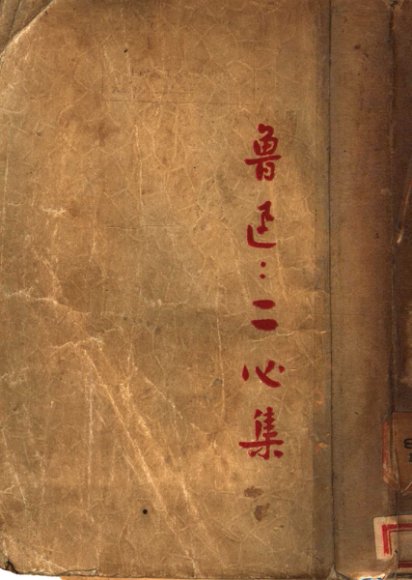 鲁迅:二心集